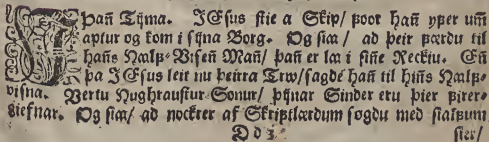 J þañ Tijma. JEsus stie a Skip/ foor hañ yfer um̃
aptur og kom i sijna Borg. Og siꜳ/ ad þeir færdu til
hañs Hꜳlf=Viseñ Mañ/ þañ er la i siñe Reckiu. Eñ
þa JEsus leit nu þeirra Trw/ sagde hañ til hiñs Hꜳlf=
visna. Vertu Hughraustur Sonur/ þijnar Sinder eru þier firer=
giefnar. Og siꜳ/ ad nockrer af Skriptlærdum søgdu med siꜳlfum
Dd 3 sier/